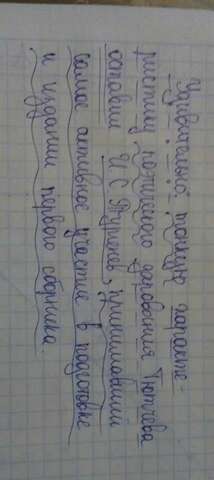 Удивительно тонкую характе-
ристику поэтического дарования Тютчева
оставил И С Тургенев, принимавший
самое активное участие в подготовке
и издании первого сборника.